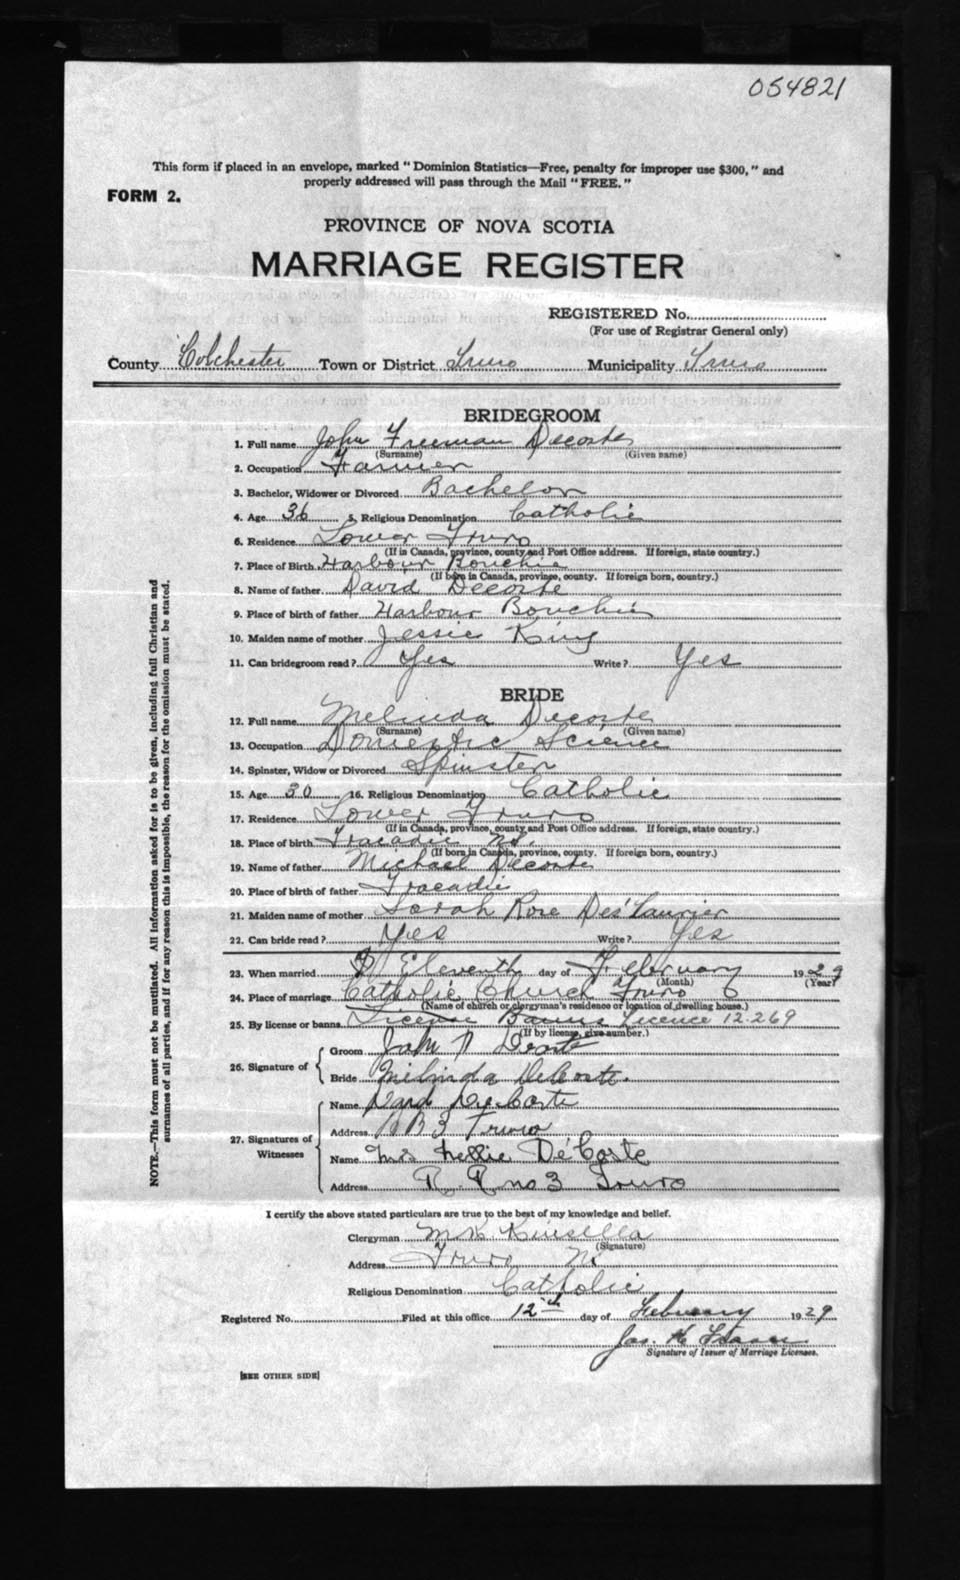 054821
This form if placed in an envelope, marked "Dominion Statistics—Free, penalty for improper use $300," and
properly addressed will pass through the Mail "FREE."
FORM 2.
PROVINCE OF NOVA SCOTIA
MARRIAGE REGISTER
REGISTERED No.
(For use of Registrar General only)
County Colchester Town or District Truro Municipality Truro
BRIDEGROOM
1. Full name John Freeman Decoste
(Surname) (Given name)
2. Occupation Farmer
3. Bachelor, Widower or Divorced Bachelor
4. Age 36 5. Religious Denomination Catholic
6. Residence Lower Truro
(If in Canada, province, county and Post Office address. If foreign, state country.)
7. Place of Birth Harbour Bouchie
(If born in Canada, province, county. If foreign born, country.)
8. Name of father David Decoste
9. Place of birth of father Harbour Bouchie
10. Maiden name of mother Jessie King
11. Can bridegroom read? Yes Write? Yes
BRIDE
12. Full name Melinda Decoste
(Surname) (Given name)
13. Occupation Domestic Science
14. Spinster, Widow or Divorced Spinster
15. Age 30 16. Religious Denomination Catholic
17. Residence Lower Truro
(If in Canada, province, county and Post Office address. If foreign, state country.)
18. Place of birth Tracadie N.S.
(If born in Canada, province, county. If foreign born, country.)
19. Name of father Michael Decoste
20. Place of birth of father Tracadie
21. Maiden name of mother Sarah Rose Des'Laurier
22. Can bride read? Yes Write? Yes
23. When married Eleventh day of February 1929
(Month) (Year)
24. Place of marriage Catholic Church Truro
(Name of church or clergyman's residence or location of dwelling house.)
25. By license or banns License Banns Licence 12-269
(If by license, give number.)
26. Signature of
Groom John Decoste
Bride Melinda DeCoste.
27. Signatures of Witnesses
Name De Coste
Address RR 3 Truro
Name Mrs Nellie De'Coste
Address R. R no 3 Truro
I certify the above stated particulars are true to the best of my knowledge and belief.
Clergyman Kinsella
(Signature)
Address Truro NS
Religious Denomination Catholic
Registered No. Filed at this office 12th day of February 1929
Jas. H.
Signature of Issuer of Marriage Licenses.
[SEE OTHER SIDE]
NOTE.—This form must not be mutilated. All information asked for is to be given, including full Christian and
surnames of all parties, and if for any reason this is impossible, the reason for the omission must be stated.